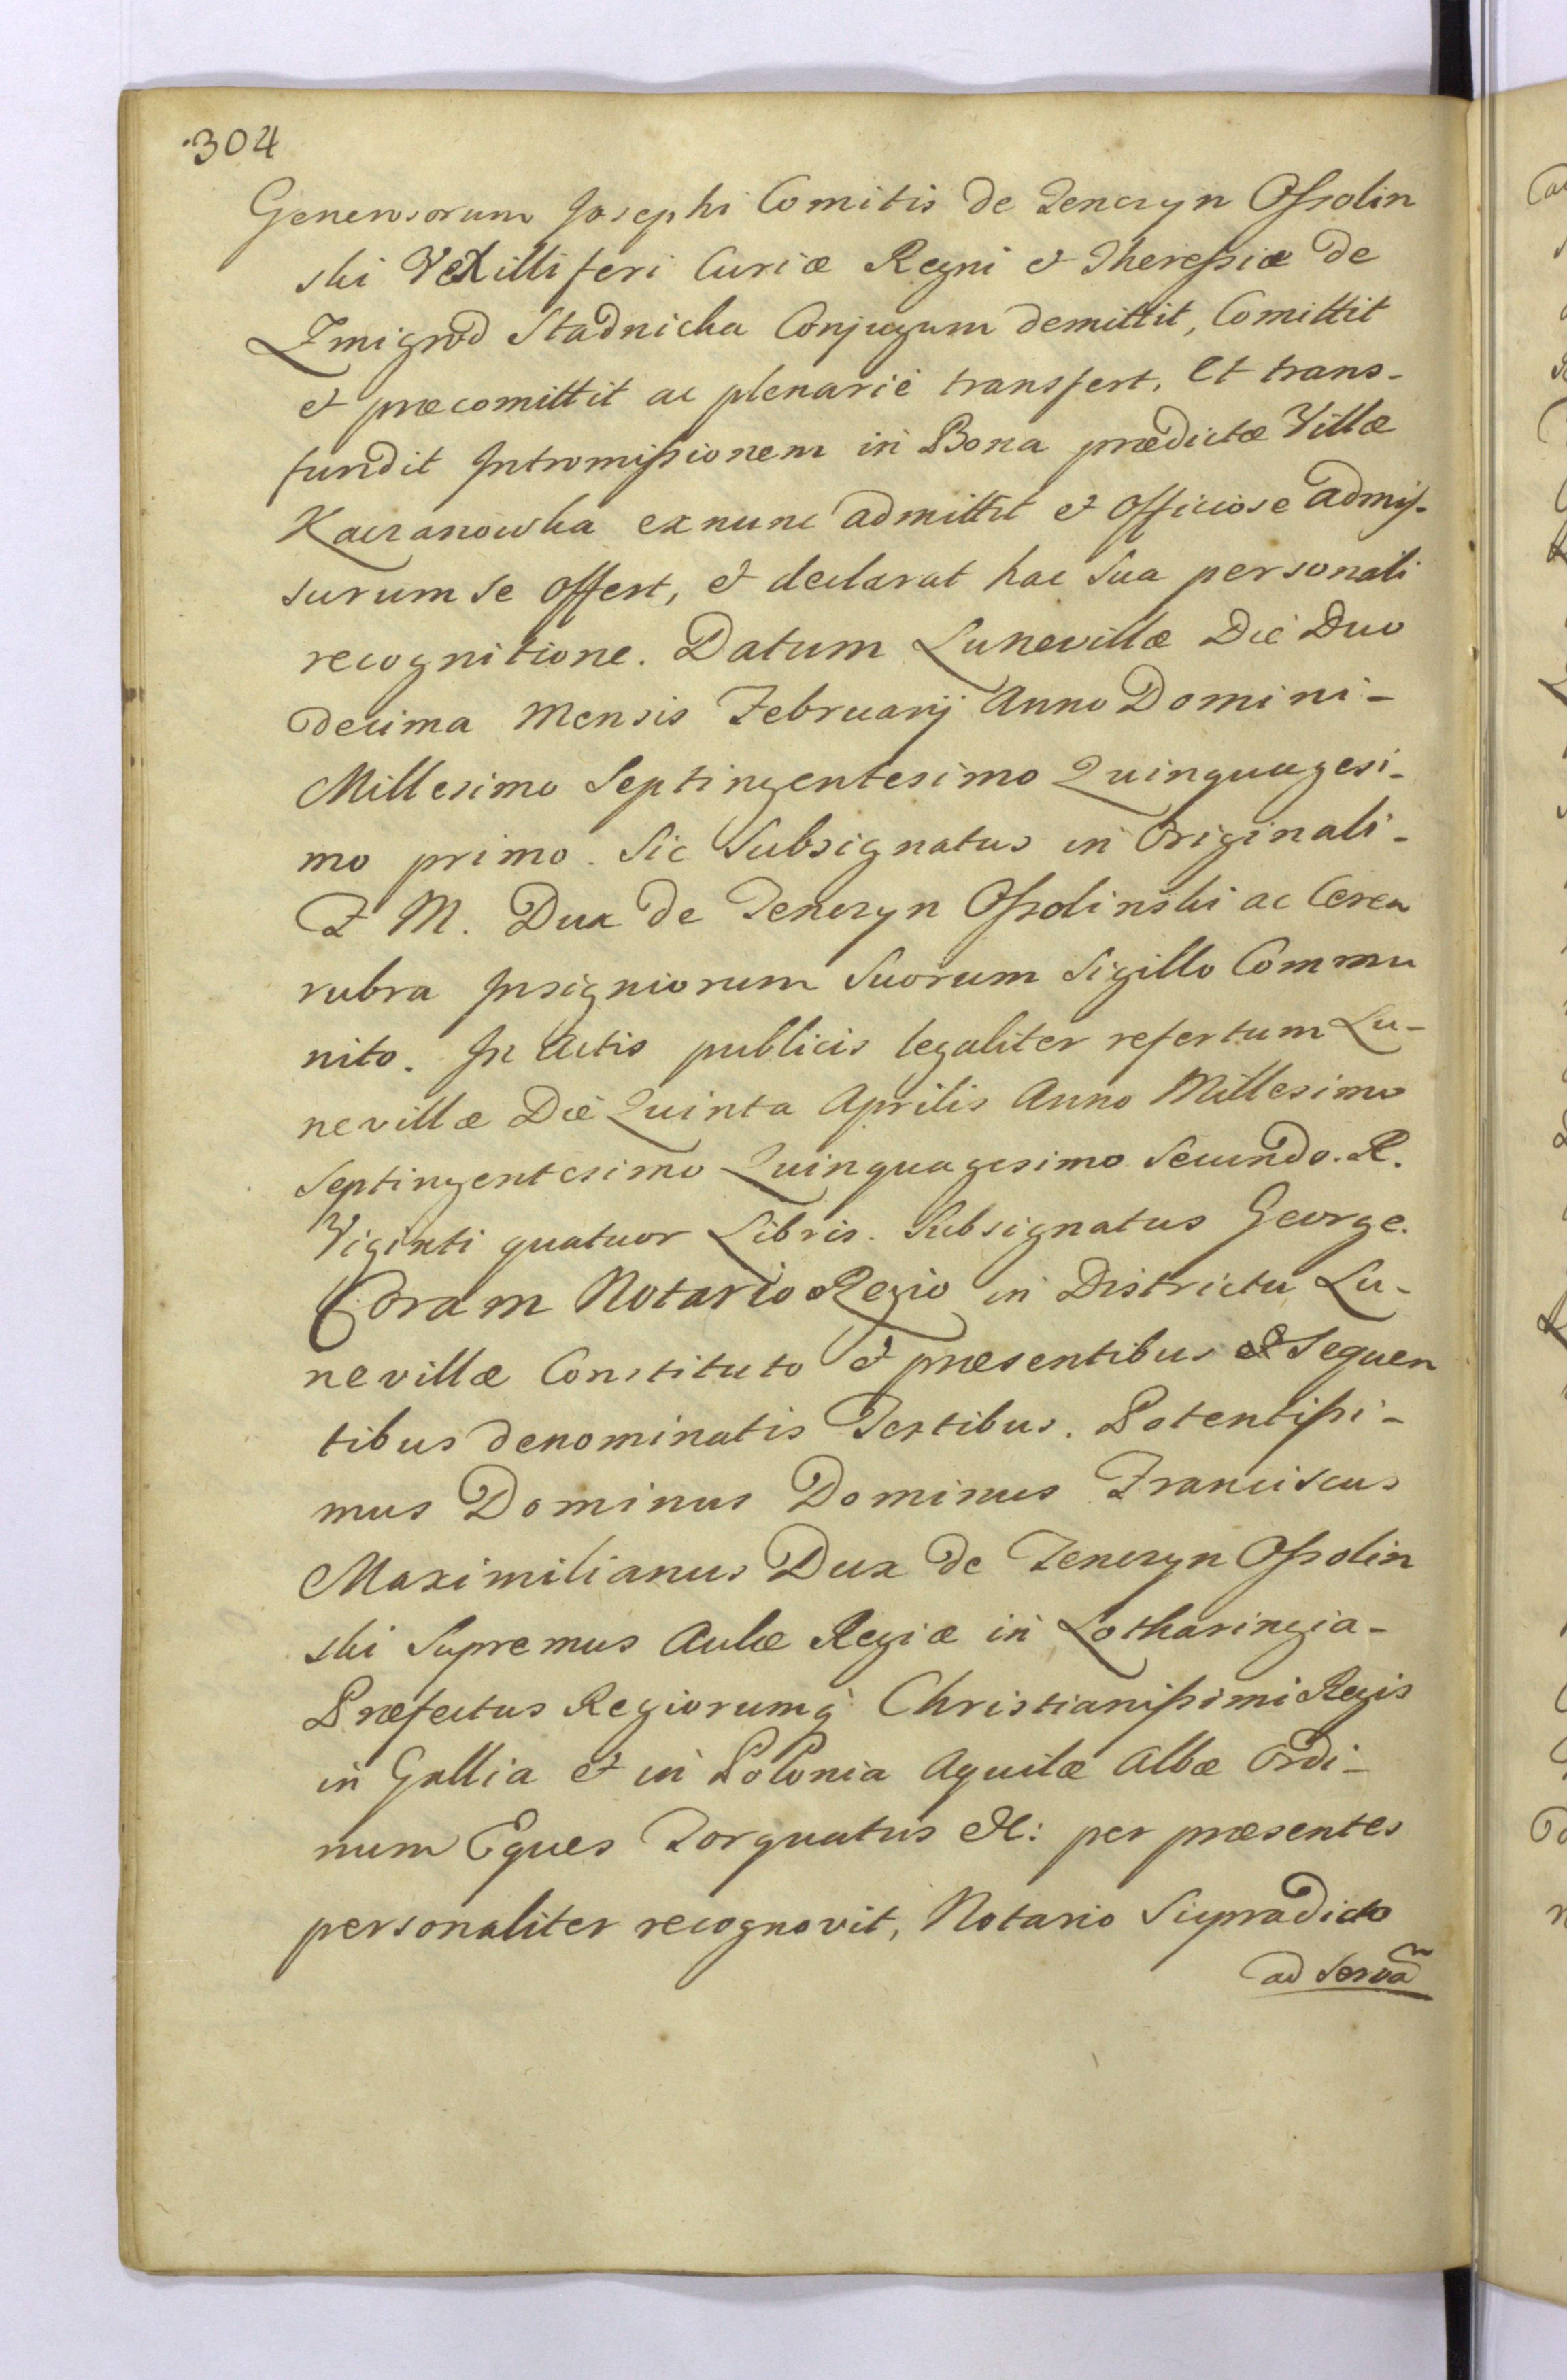 304
Generosorum Josephi Comitis de Tenczyn Ossolin
ski Vexilliferi Curiæ Regni et Theressiæ de
Zmigrod Stadnicka Conjugum demittit, Comittit
et præcomittit ac plenarie transfert, et trans-
fundit Intromissionem in Bona prædictæ Villæ
Kaczanowka exnunc admittit et officiose admis-
surum se offert, et declarat hac sua personali
recognitione. Datum Lunevillæ Die Duo
decima Mensis Februarij Anno Domini-
Millesimo Septingentesimo Quinquagesi-
mo primo. Sic Subsignatus in Originali-
F M. Dux de Tenczyn Ossolinski ac Cerea
rubra Insigniorum Suorum Sigillo Commu
nito. In Actis publicis legaliter refertum Lu-
nevillæ Die Quinta Aprilis Anno Millesimo
Septingentesimo Quinquagesimo Secundo. R.
Viginti quatuor Libris. Subsignatus George.
Coram Notario Regio in Districtu Lu-
nevillæ Constituto et præsentibus et Sequen
tibus denominatis Testibus. Potentissi-
mus Dominus Dominus Franciscus
Maximilianus Dux de Tenczyn Ossolin
ski Supremus Aulæ Regiæ in Lotharingia-
Præfectus Regiorumq Christianissimi Regis
in Gallia et in Polonia Aquilæ Albæ Ordi-
num Eques Torquatus etc: per præsentes
personaliter recognovit, Notario Supradicto
ad servã